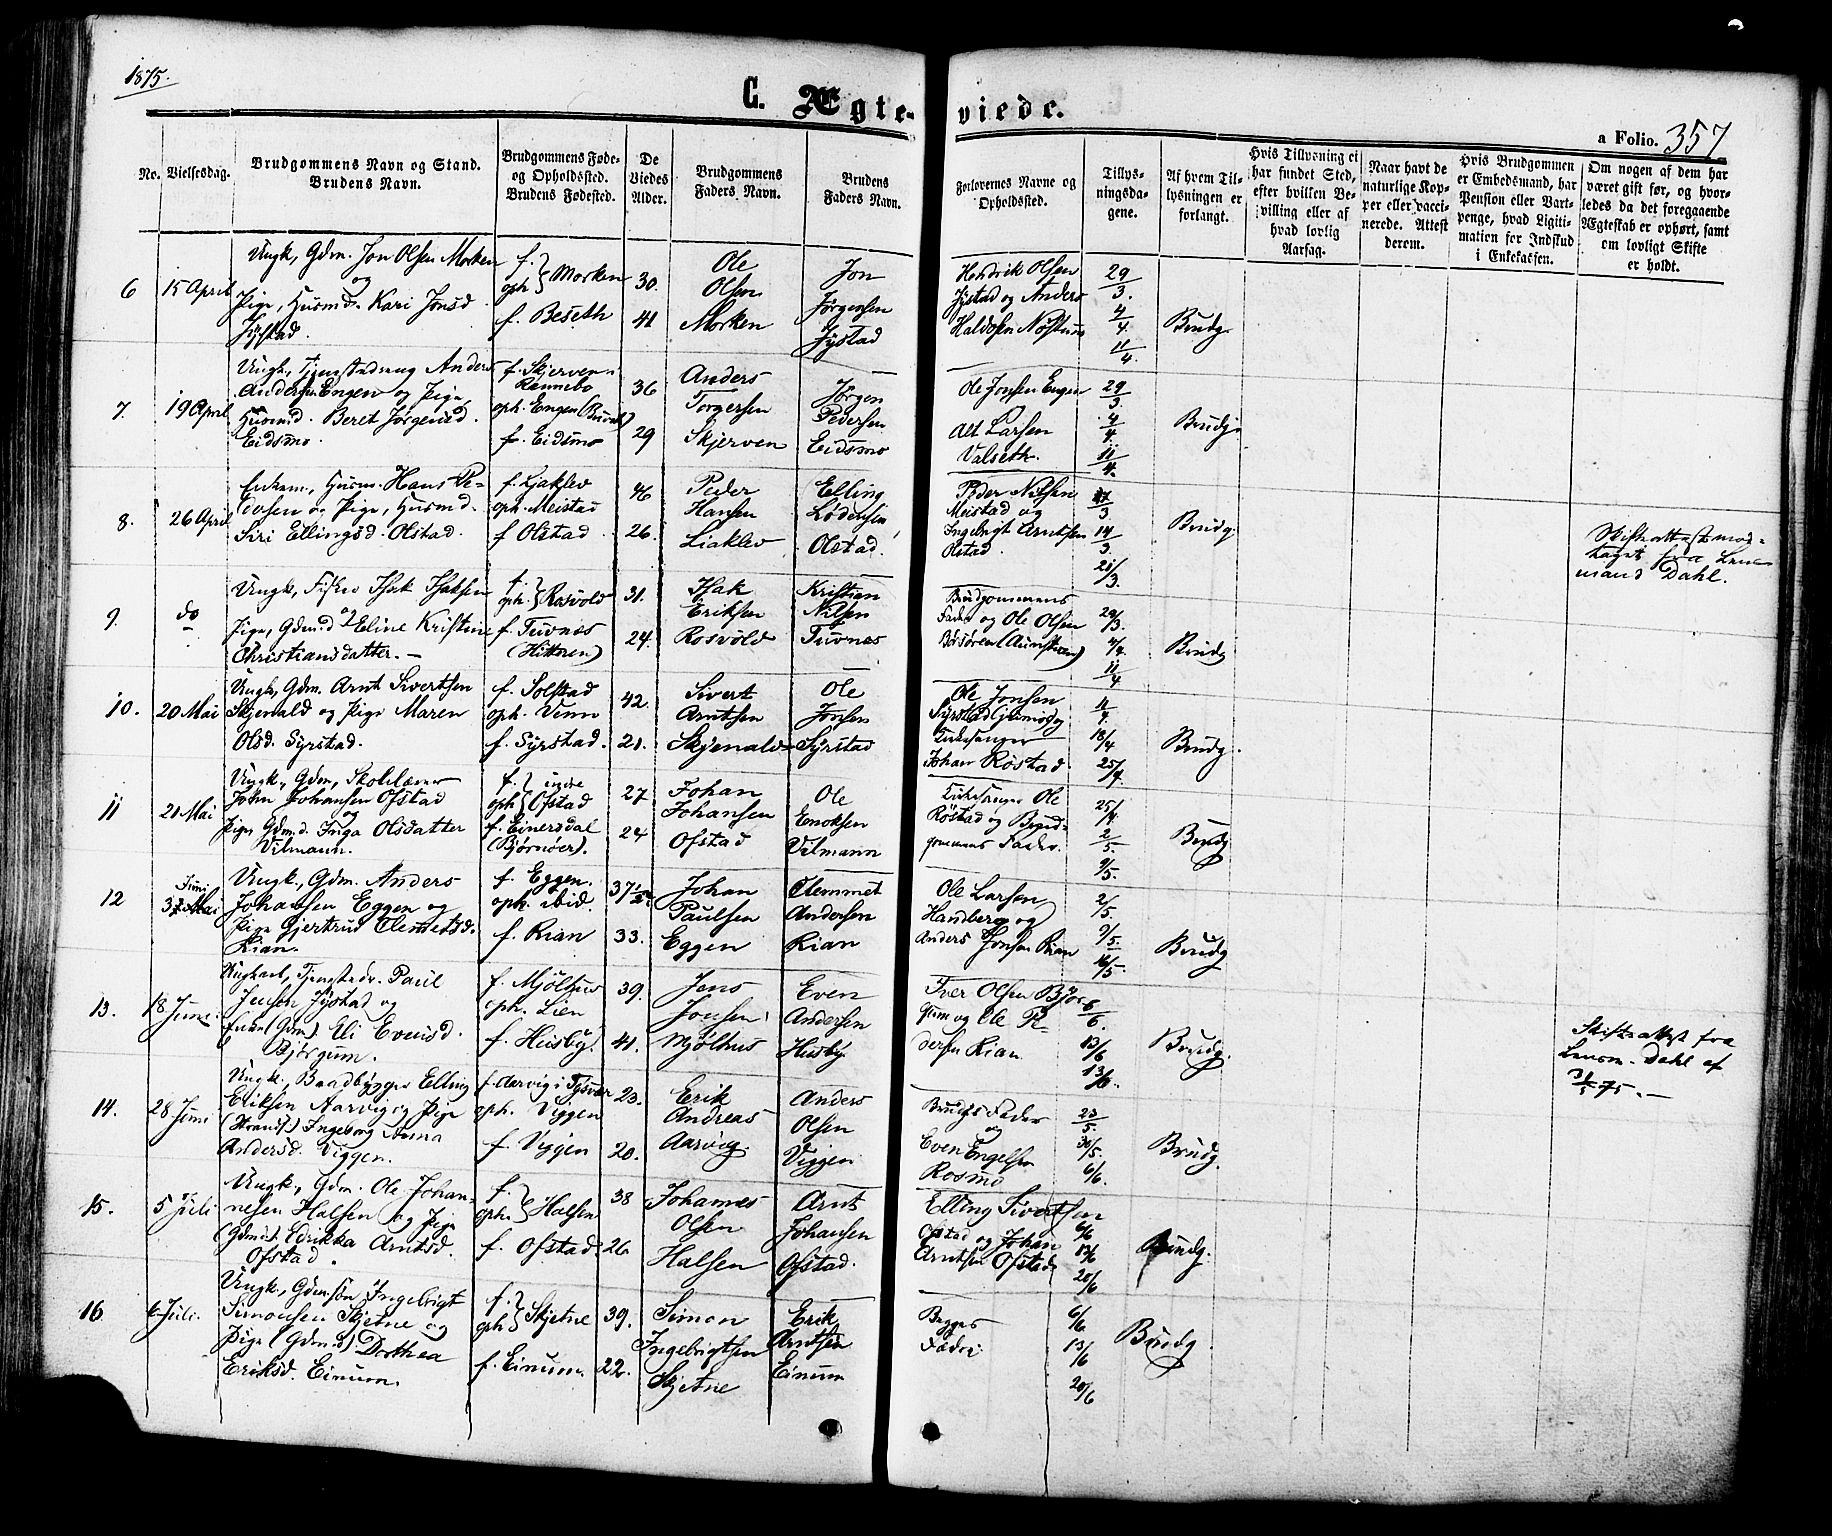 1875.
C. Ægteviede.
a Folio. 357
No.
Vielsesdag.
Brudgommens Navn og Stand.
Brudens Navn.
Brudgommens Føde-
og Opholdssted.
Brudens Fødested.
De
Viedes
Alder.
Brudgommens
Faders Navn.
Brudens
Faders Navn.
Forlovernes Navne og
Opholdssted.
Tillys-
ningsda-
gene.
Af hvem Til-
lysningen er
forlangt.
Hvis Tillysning ei
har fundet Sted,
efter hvilken Be-
villing eller af
hvad lovlig
Aarsag.
Naar havt de
naturlige Kop-
per eller vacci-
nerede. Attest
derom.
Hvis Brudgommen
er Embedsmand, har
Pension eller Vart-
penge, hvad Ligiti-
mation for Indskud
i Enkekassen.
Om nogen af dem har
været gift før, og hvor-
ledes da det foregaaende
Ægteskab er ophørt, samt
om lovligt Skifte
er holdt.
6 15 April
Ungk, Gdm. Jon Olsen Morken
og
Pige, Husmd. Kari Jonsd
Jystad.
f. } Morken
oph
f. Beseth
30.
41
Ole
Olsen
Morken
Jon
Jørgensen
Jystad
Hendrik Olsen
Jystad og Anders
Haldosen Nøstum
29/3.
4/4.
11/4.
Brudg
7. 19 April
Ungk, Tjenstedreng Anders
Andersen Engen og Pige,
Husmd. Beret Jørgensd.
Eidsmo.
f. Skjerven i
Rennebo
oph. Engen (Buvik)
f. Eidsmo
36
29
Anders
Torgersen
Skjerven
Jørgen
Pedersen
Eidsmo
Ole Jonsen Engen
Alt Larsen
Valseth.
29/3.
4/4.
11/4.
Brudg
8. 26 April
Enkem., Husm. Hans Pe-
dersen og Pige, Husmd.
Siri Ellingsd. Olstad.
f. Ljaklev
oph. Meistad
f Olstad
46
26.
Peder
Hansen
Liaklev
Elling
Lødensen
Olstad.
Peder Nilsen
Meistad og
Ingebrigt Arntsen
Olstad.
14/3.
21/3.
Brudg.
Skifteattest mod-
taget fra Lens-
mand Dahl.
9. do
Ungk, Fisker Isak Isaksen
og
Pige, Gdmd Eline Kristine
Christiansdatter. —
f. } Rosvold
oph.
f. Tuvnes
(Hitteren)
31.
24.
Isak
Eriksen
Rosvold
Kristian
Nilsen
Tuvnes
Brudgommens
Fader og Ole Olsen
29/3.
4/4.
11/4
Brudg
10. 20 Mai
Ungk, Gdm. Arnt Sivertsen
Skjenald og Pige Maren
Olsd. Syrstad.
f. Solstad
oph. Venn
f. Syrstad.
42.
21.
Sivert
Arntsen
Skjenald
Ole
Jonsen
Syrstad
Ole Jonsen
Kirkesanger
Johan Røstad.
11/4.
18/4
25/4.
Brudg.
11 21 Mai
Ungk, Gdm, Skolelærer
John Johansen Ofstad
og
Pige Gdmd. Inga Olsdatter
Vilmann.
f. } indre
oph } Ofstad
f. Einersdal
(Bjørnøer).
27
24
Johan
Johansen
Ofstad
Ole
Enoksen
Vilmann
Kirkesanger Ole
Røstad og Brud-
gommens Fader.
25/4.
2/5.
9/5.
Brudg
12 Juni
Ungk, Gdm. Anders
Johansen Eggen og
Pige Gjertrud Clemetsd.
Rian.
f. Eggen.
oph. ibid.
f. Rian
37½
33.
Johan
Paulsen
Eggen
Clemmet
Andersen
Rian
Ole Larsen
Handberg og
Anders Jonsen Rian
2/5.
9/5.
16/5.
Brudg
13. 18 Juni
Ungkarl, Tjenestedr. Paul
Jensen Jystad og
Enke (Gdm.) Eli Evensd.
Bjørgum.
f. Mjølhus
oph. Lien
f. Husby.
39.
41.
Jens
Jonsen
Mjølhus
Even
Andersen
Husby
Iver Olsen Bjør-
gum og Ole P-
dersen Rian
6/6.
13/6
13/6.
Brudg.
Skifteattest fra
Lensm. Dahl af
31/5 75. —
14. 28 Juni
Ungk, Baadbygger Elling
Eriksen Aarvig og Pige
(Strands.) Ingeborg Anna
Andersd. Viggen.
f. Aarvig i Tysvær
oph. Viggen
f. Viggen
23.
20.
Erik
Andreas
Aarvig
Anders
Olsen
Viggen
Brudens Fader
og
Even Engelsen
Rosmo
23/5.
30/5.
6/6.
Brudg.
15. 5 Juli
Ungk, Gdm. Ole Johan-
nesen Halsen og Pige
(Gdmd.) Edrikka Arntsd.
Ofstad.
f. } Halsen
oph.
f. Ofstad
38
26
Johannes
Olsen
Halsen
Arnt
Johansen
Ofstad.
Elling Sivertsen
Ofstad og Johan
Arntsen Ofstad
6/6
13/6
20/6
Brudg.
16 6 Juli.
Ungk, Gdmsøn Ingebrigt
Simonsen Skjetne og
Pige (Gdmd) Dorthea
Eriksd. Einum.
f. } Skjetne
oph
f. Einum.
39.
22.
Simon
Ingebrigtsen
Skjetne
Erik
Arntsen
Einum
Begges
Fædre
6/6
13/6
20/6
Brudg.